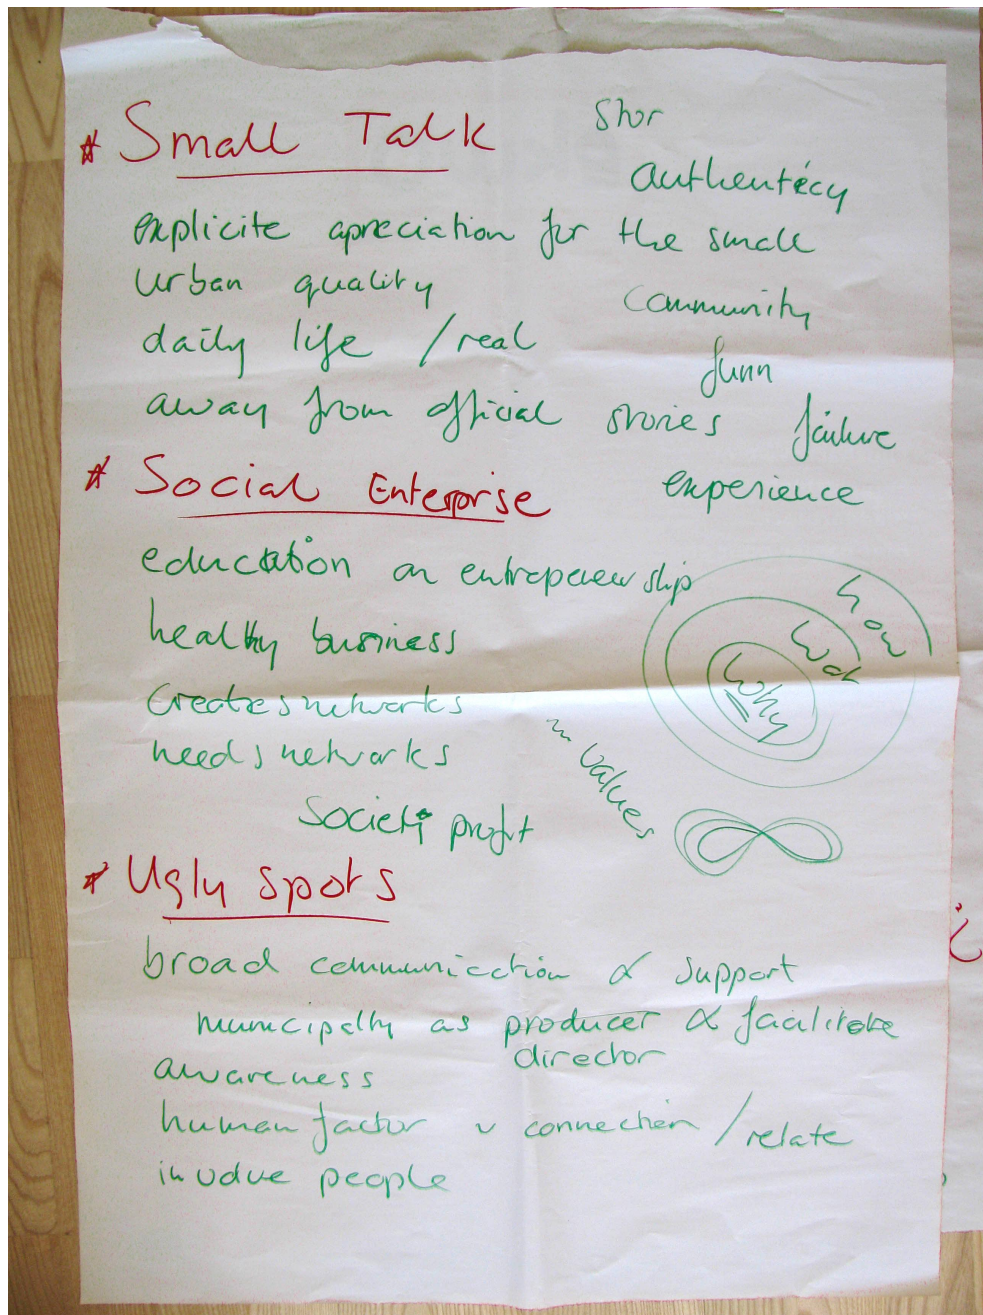 Small Talk
Stor
authenticy
explicite apreciation for the small
urban quality
community
daily life / real
funn
away from official stories
failure
Social Enterprise
experience
education on entrepeneurship
how
healthy business
Why
Creates networks
values
needs networks
profit
Ugly spots
broad communication & support
municipalty as producer & facilitate
director
awareness
human factor ~ connection / relate
involve people